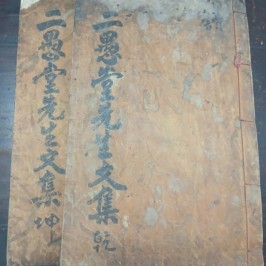 二愚堂先生文集 乾
二愚堂先生文集 坤上